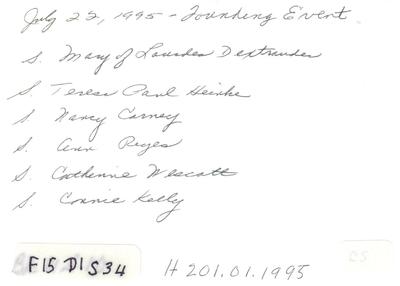 July 22, 1995 - Founding Event
S. Mary of Lourdes Dextrauder
S. Teresa Paul Heinke
S. Nancy Carney
S. Ann Reyes
S. Catherine Wescott
S. Connie Kelly
F15 D1 S34
H 201.01.1995
CS